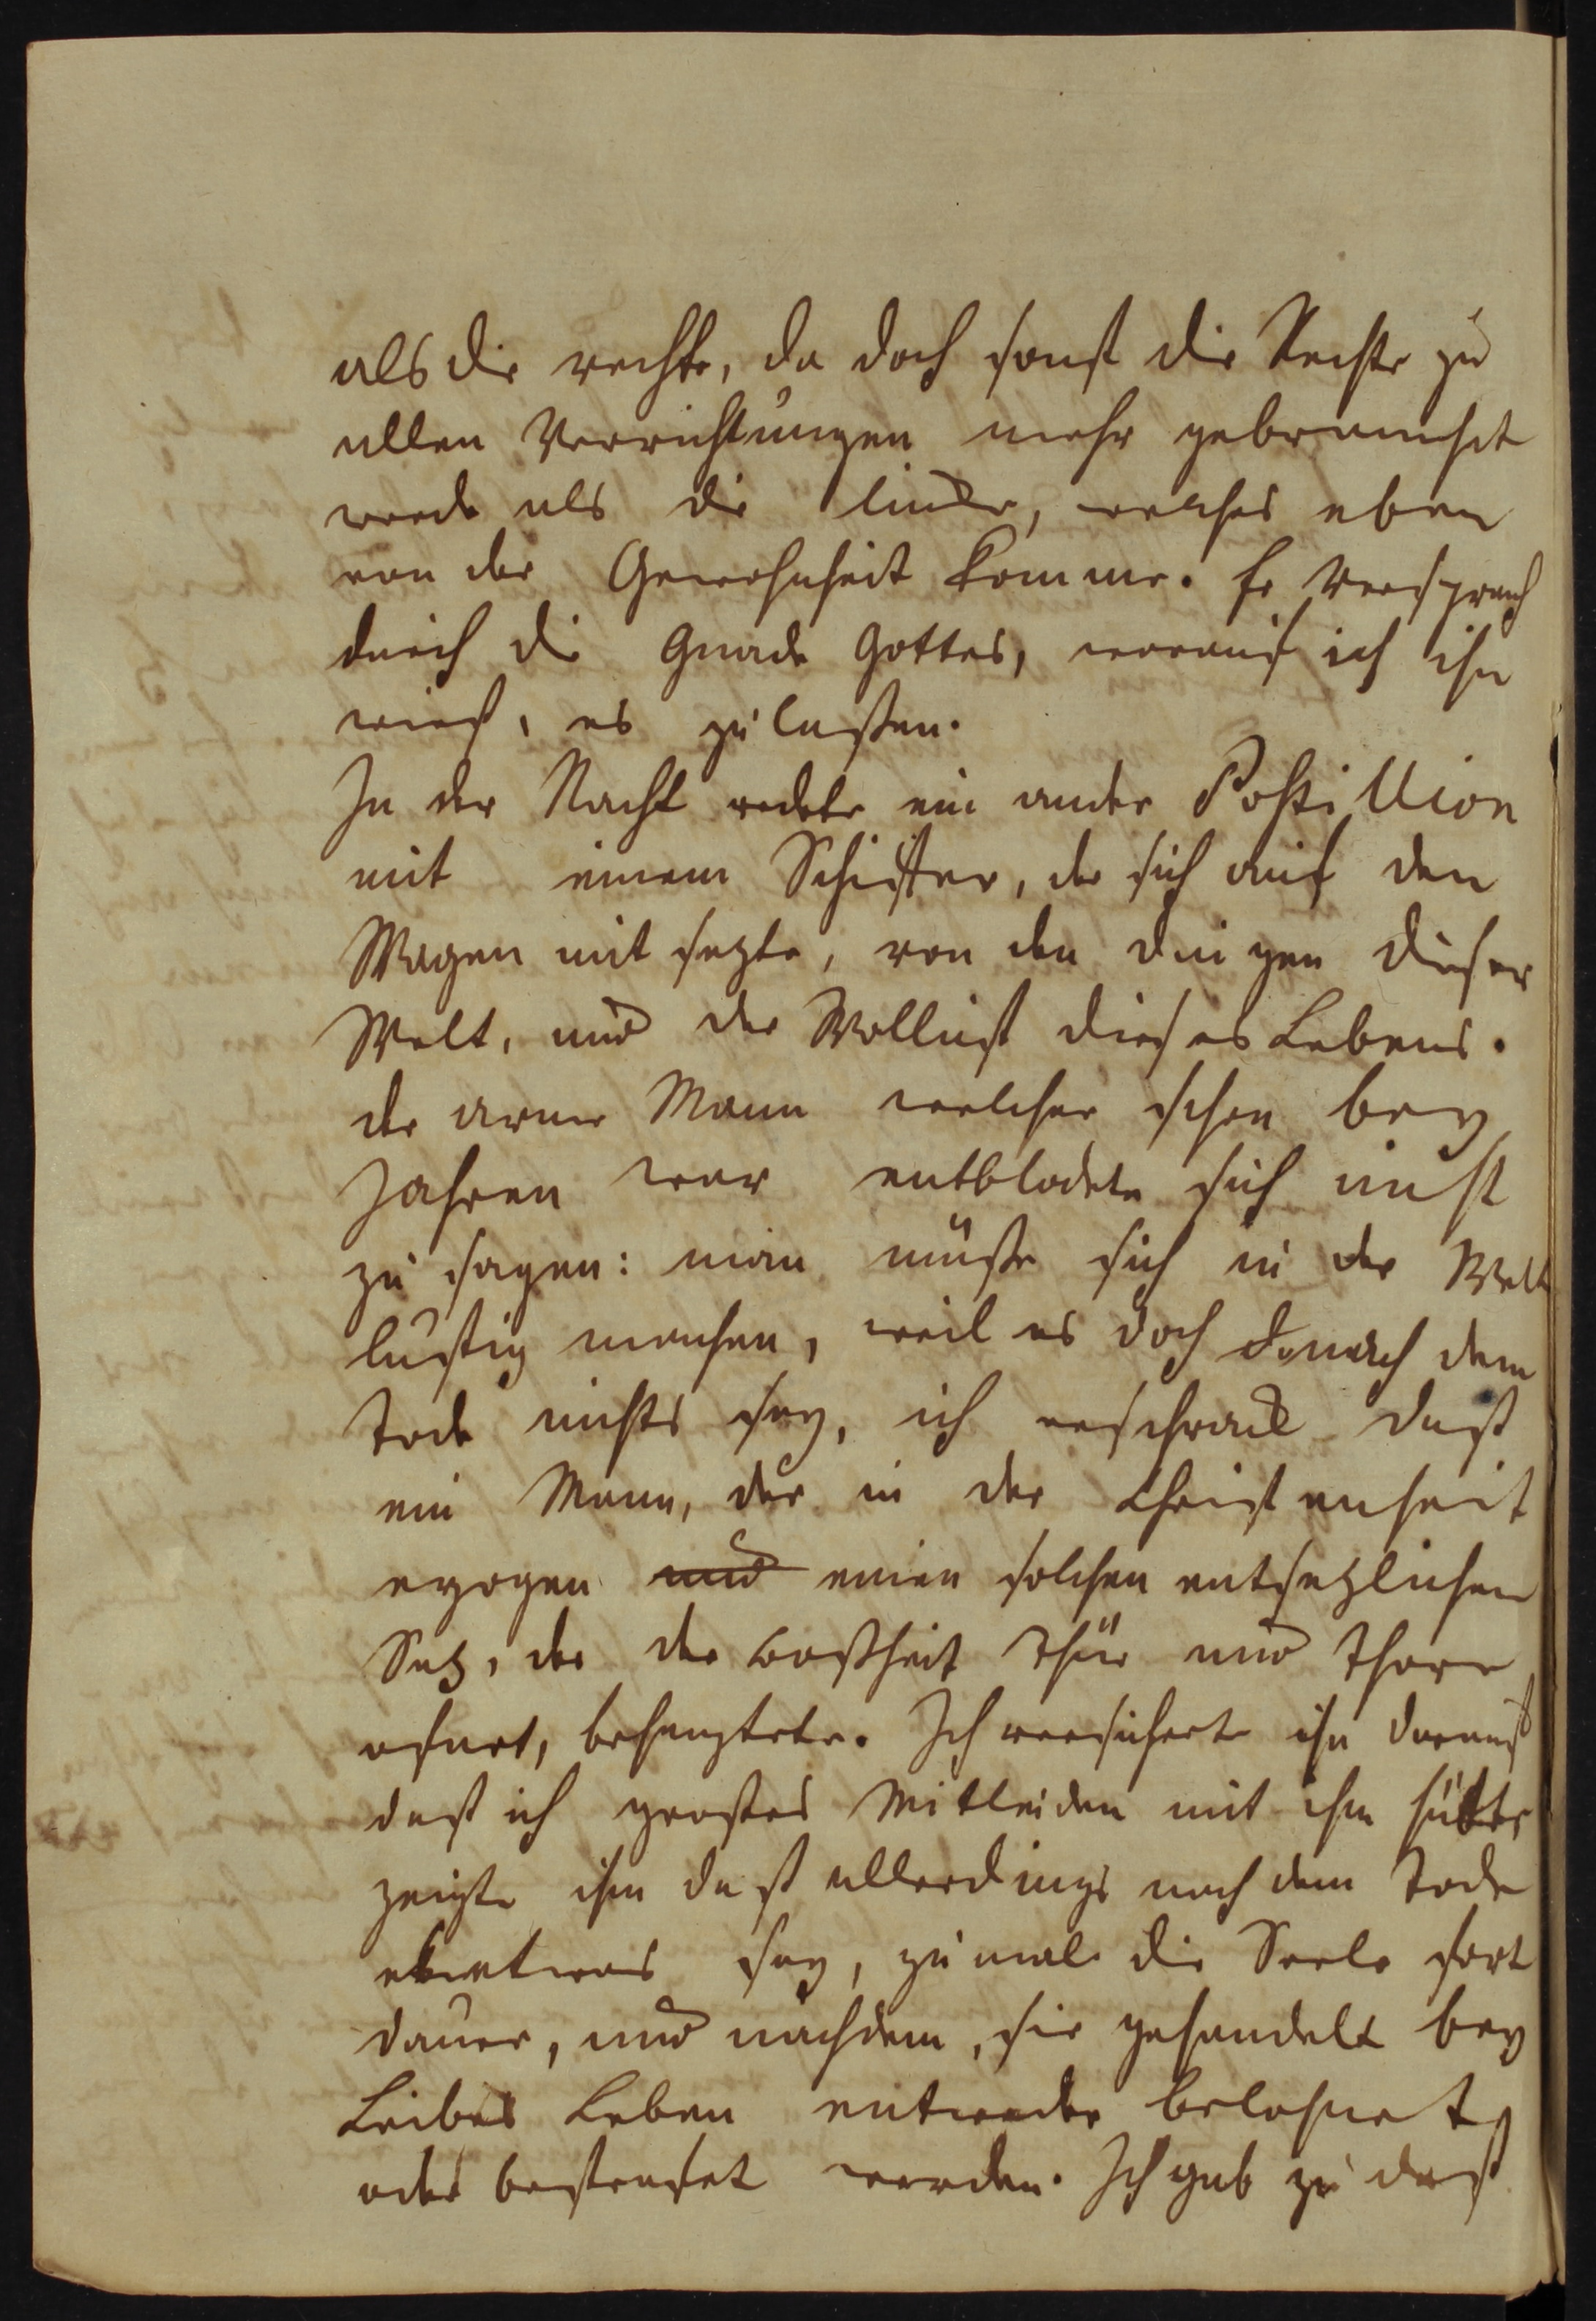 als die rechte, da doch sonst die Rechte zu
allen Verrichtungen mehr gebrauchet
werde als die lincke, welches eben
von der Gewohnheit komme. Er versprach
durch die Gnade Gottes, worauf ich ihn
wieß, es zu laßen.
In der Nacht redete ein ander Postillion
mit einem Schuster, der sich auf den
Wagen mit sezte, von den Dingen dieser
Welt, und der Wollust dieses Lebens.
der arme Mann welcher schon bey
Jahren war entblodete sich nicht
zu sagen: man müße sich in der Welt
lustig machen, weil es doch nach dem
Tode nichts sey, ich erschrack daß
ein Mann, der in der Christenheit
erzogen und einen solchen entsezlichen
Saz, der der Boßheit Thür und Thore
ofnet, behauptete. Ich versicherte ihn darauf
daß ich großes Mitleiden mit ihm hätte
zeigte ihm daß allerdings nach dem Tode
etwas sey, zumal die Seele fort
daure, und nachdem, sie gehandelt bey
Leibes Leben entweder belohnet
oder bestrafet werden. Ich gab zu daß